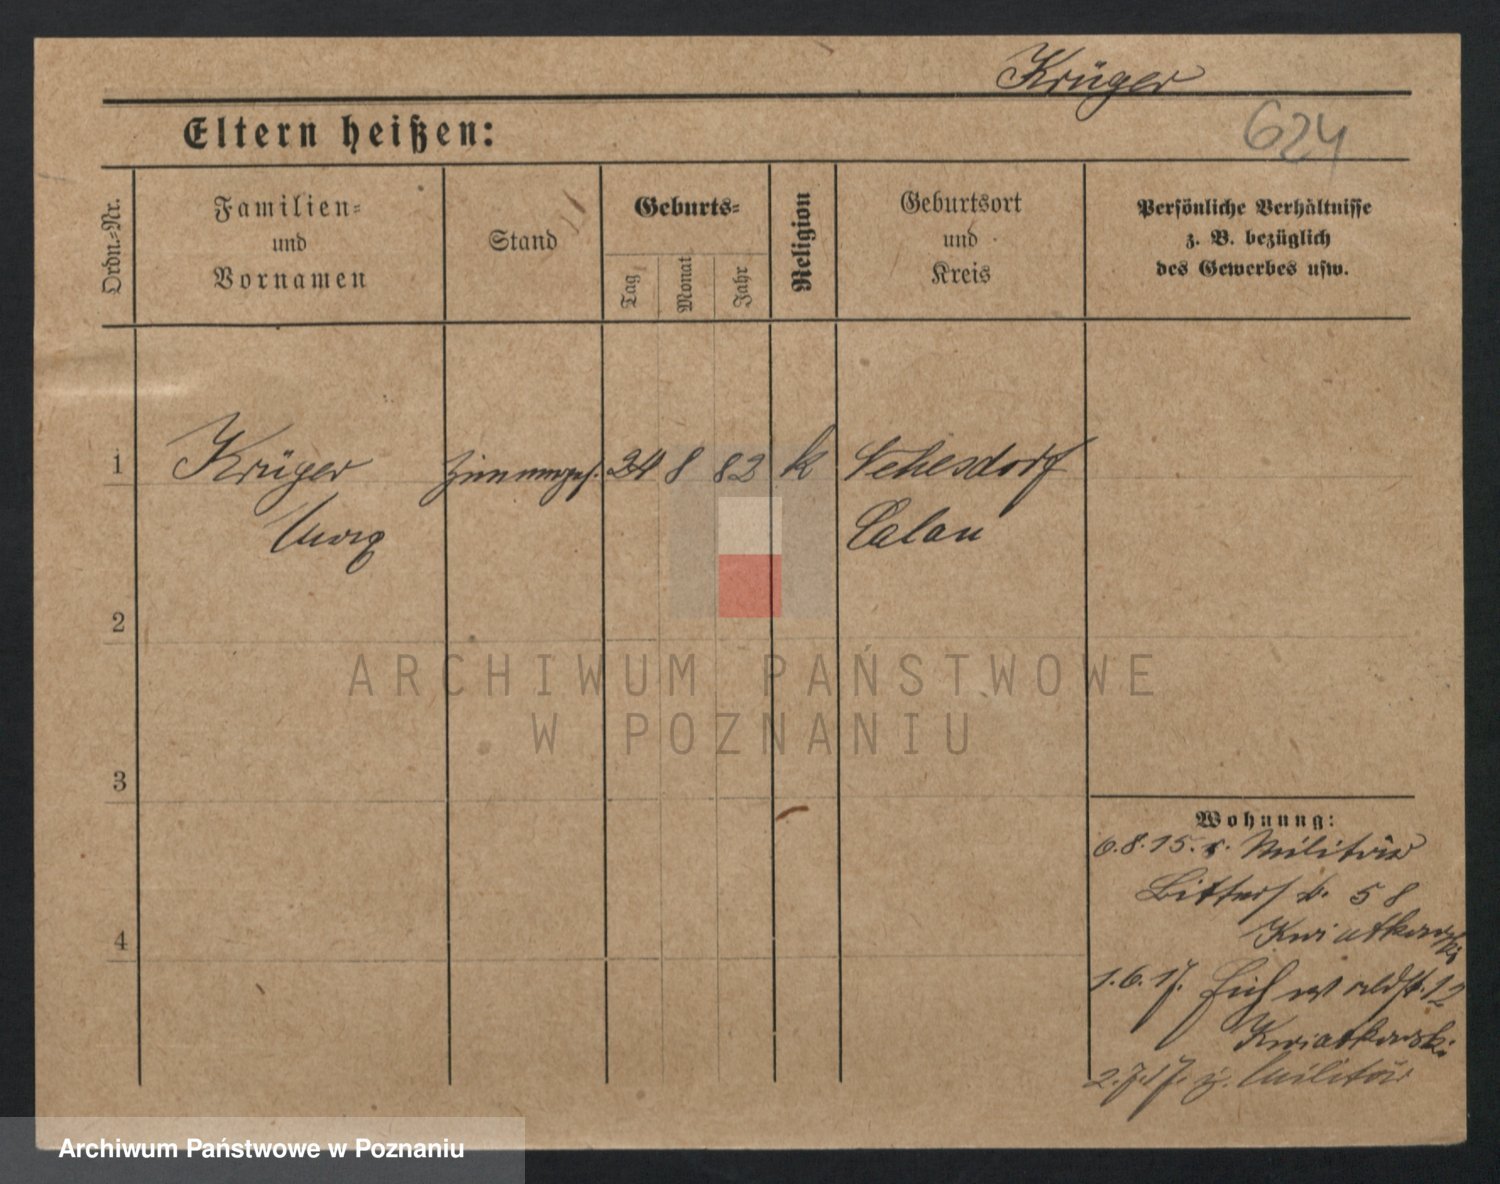 Krüger
624
Eltern heißen:
Ordn.-Nr.
Familien-
und
Vornamen
Stand
Geburts-
Tag
Monat
Jahr
Religion
Geburtsort
und
Kreis
Persönliche Verhältnisse
z. B. bezüglich
des Gewerbes usw.
1 Krüger Zimmerges. 24 8 82 k Sehesdorf
Calau
2
3
4
Wohnung:
6.8.15. v. Militär
b. 58
Kwiatkowski
1.6.17. 12
Kwiatkowski
2.7.17. z. Militär
ARCHIWUM PAŃSTWOWE
W POZNANIU
Archiwum Państwowe w Poznaniu